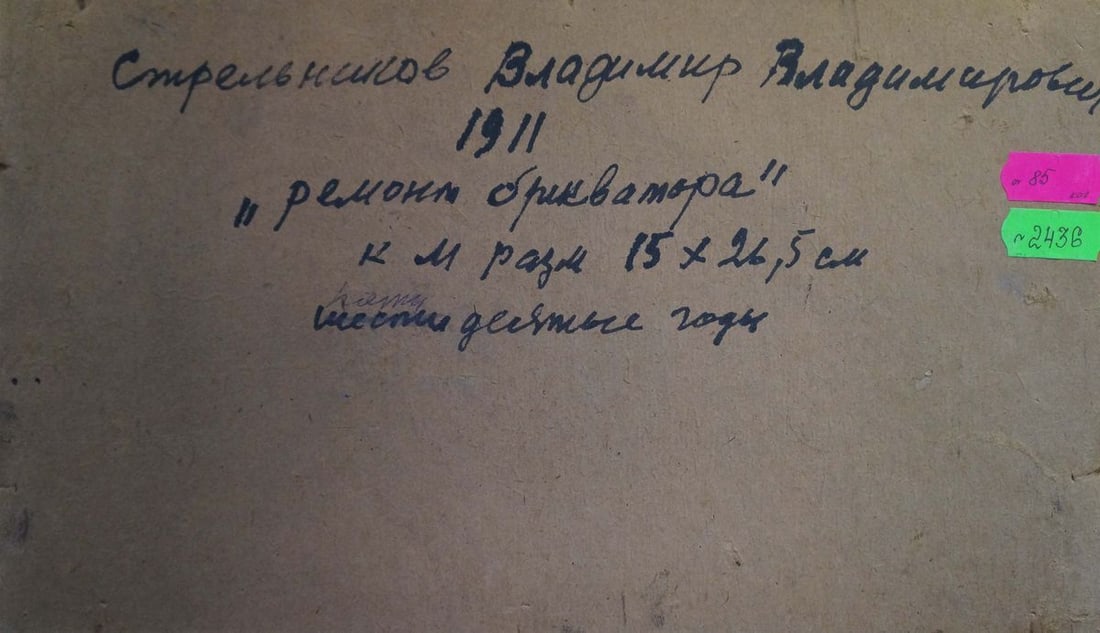 Стрельников Владимир Владимирович
1911
„ремонт брикватора"
к м разм 15 х 26,5 см
шести десятые годы
85
~2436